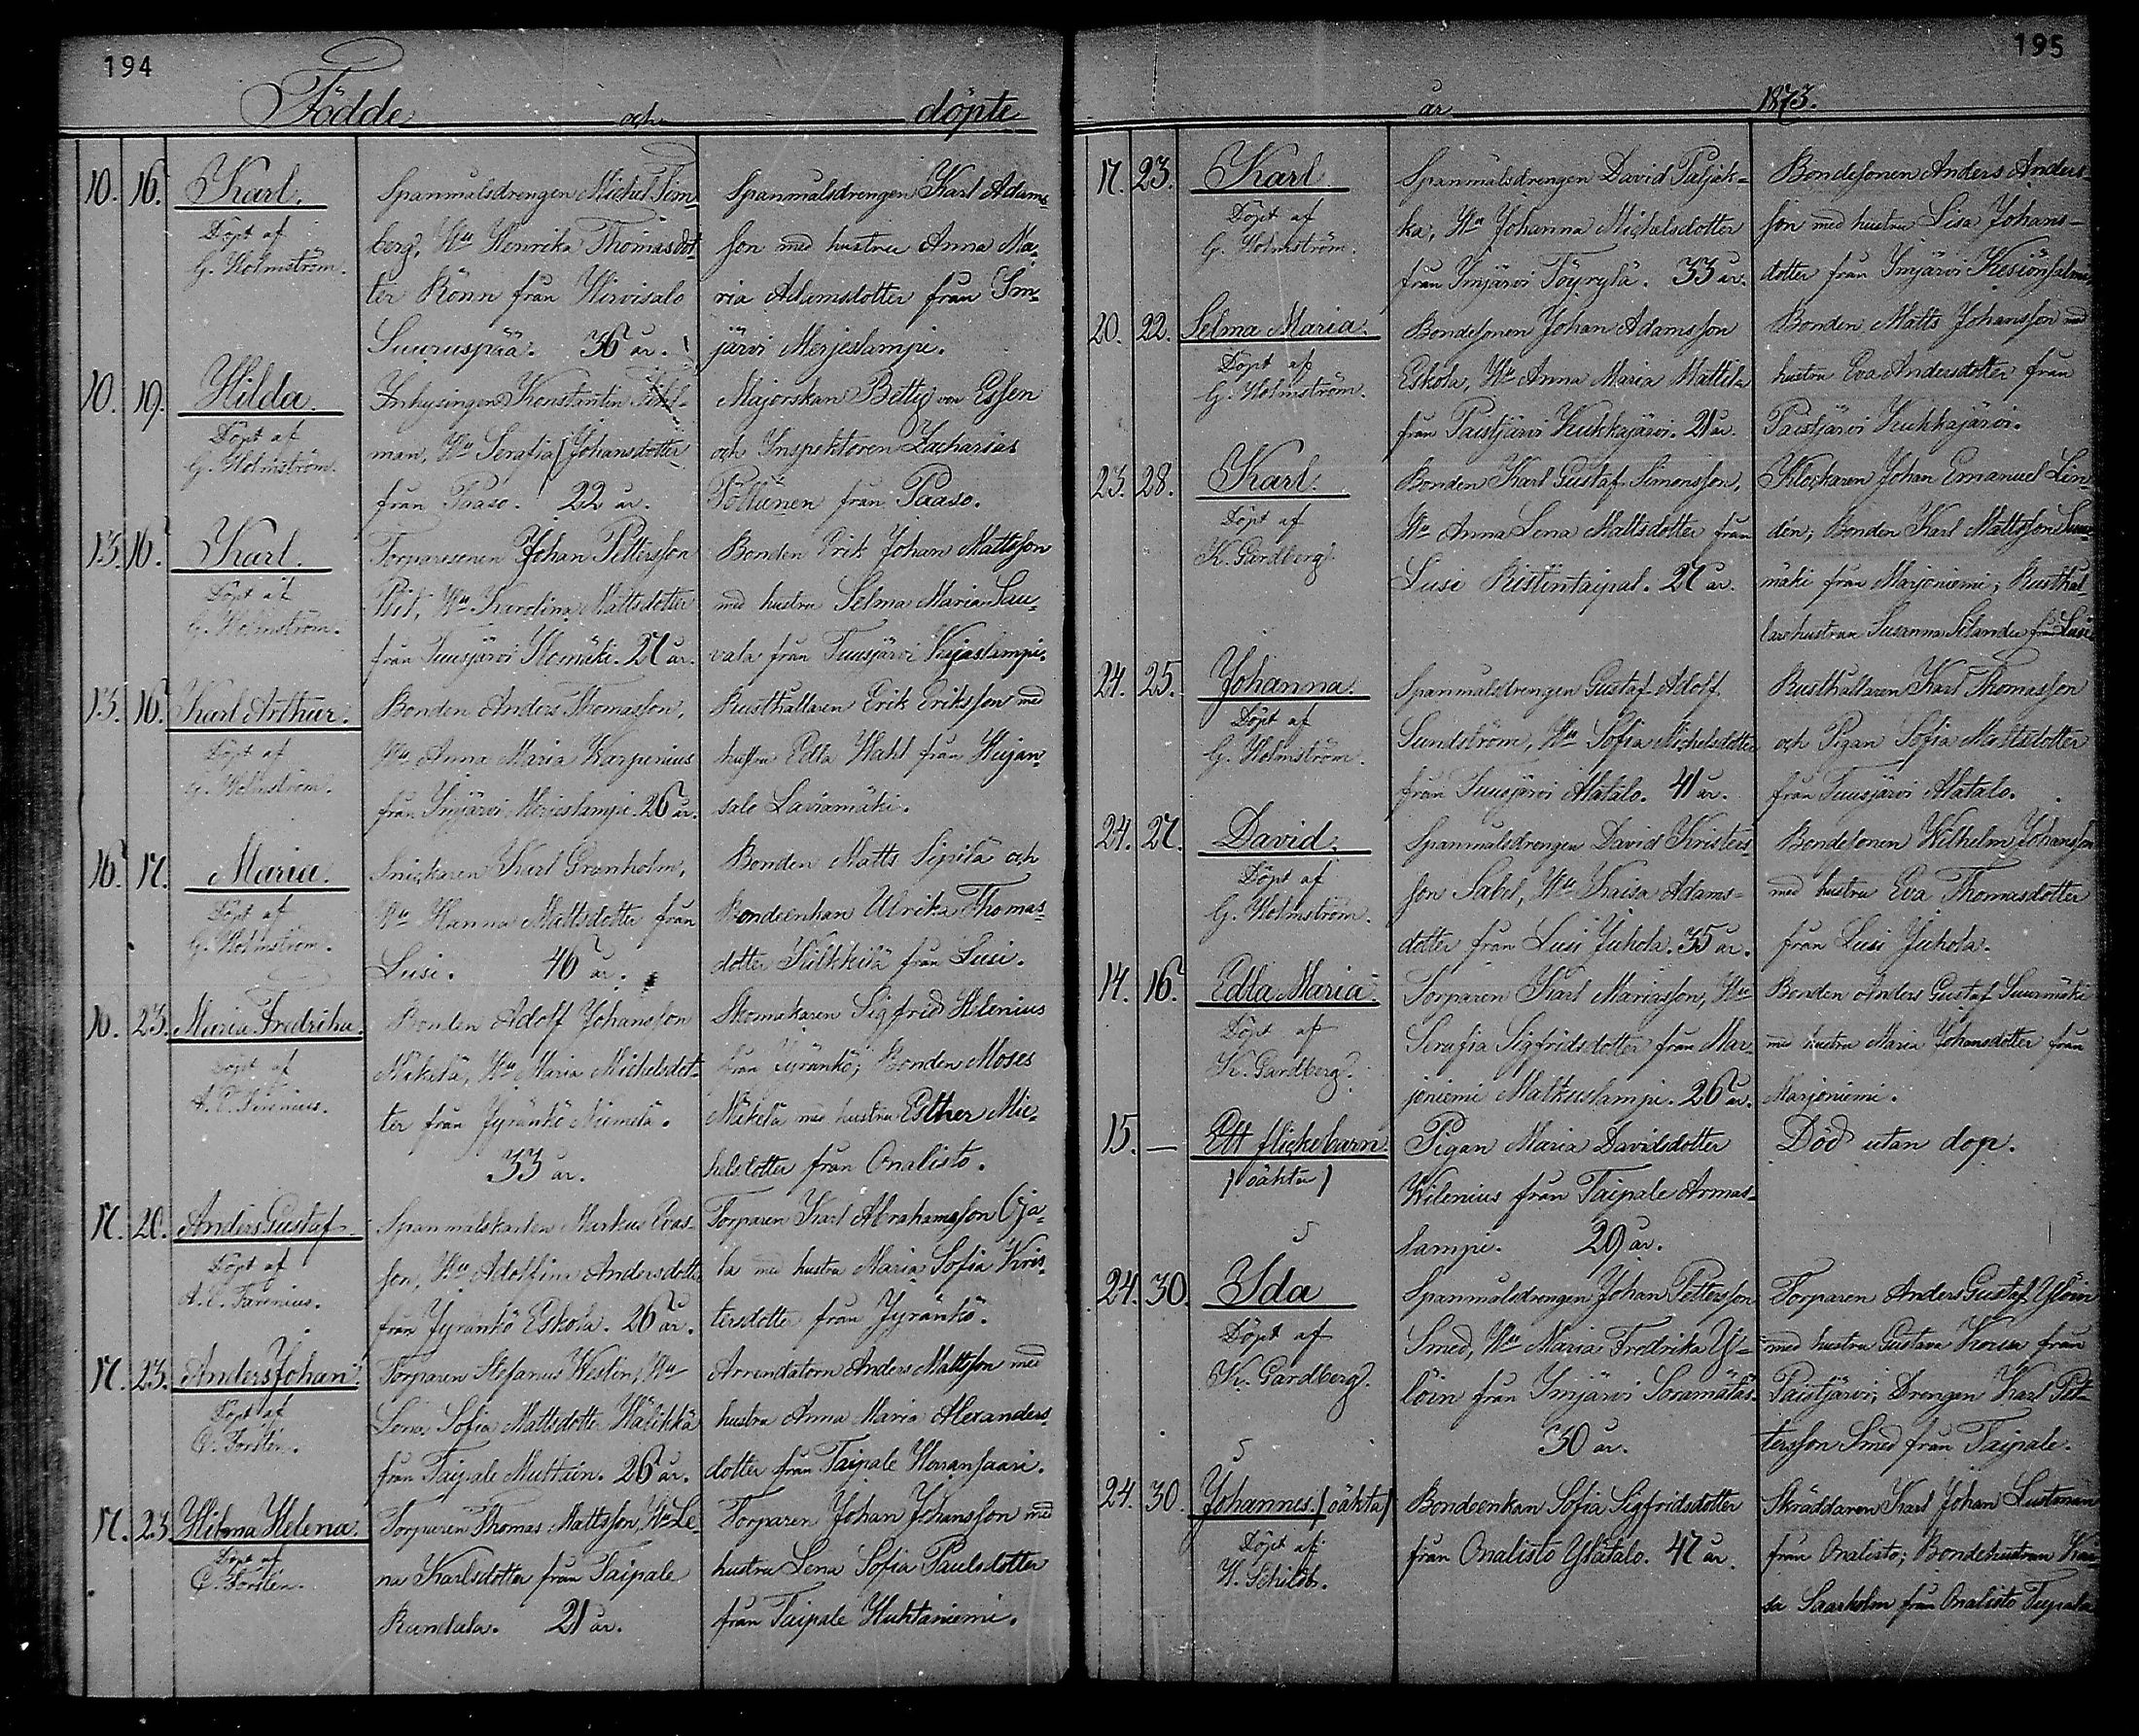 194
Födde och döpte
10. 16. Karl.
Döpt af
G. Holmström.
Spanmålsdrengen Michel Tim-
berg, Hu Henrika Thomasdot-
ter Rönn från Hirvisalo
Suuruspää. 36 år.
Spanmålsdrengen Karl Adams-
son med hustru Anna Ma-
ria Adamsdotter från Im-
järvi Merjeslampi.
10. 19. Hilda.
Döpt af
G. Holmström.
Inhysingen Konstantin
man, Hu Serafia Johansdotter
från Paaso. 22 år.
Majorskan Betty von Essen
och Inspektoren Zacharias
Pöttinen från Paaso.
13. 16. Karl.
Döpt af
G. Holmström.
Torparesonen Johan Pettersson
Pit, Hu Karolina Mattsdotter
från Tuusjärvi Ilomäki. 27 år.
Bonden Erik Johan Mattsson
med hustru Selma Maria Lau-
vala från Tuusjärvi Kujaslampi.
13. 16. Karl Arthur.
Döpt af
G. Holmström.
Bonden Anders Thomasson,
Hu Anna Maria Karpenius
från Imjärvi Merjeslampi. 26 år.
Rusthållaren Erik Eriksson med
hustru Edla Wahl från Heijan-
salo Laviamäki.
16. 17. Maria.
Döpt af
G. Holmström.
Snickaren Karl Granholm,
Hu Hanna Mattsdotter från
Lusi. 46 år.
Bonden Matts Sipilä och
Bondeenkan Ulrika Thomas-
dotter Kilkkilä från Lusi.
16. 23. Maria Fredrika.
Döpt af
A. E. Farenius.
Bonden Adolf Johansson
Mäkelä, Hu Maria Michelsdot-
ter från Jyränkö Niemelä.
33 år.
Skomakaren Sigfrid Helenius
från Jyränkö; Bonden Moses
Mäkelä med hustru Esther Mic-
helsdotter från Onalisto.
17. 20. Anders Gustaf.
Döpt af
A. E. Farenius.
Spanmålskarlen Markus Evas-
son, Hu Adolfina Andersdotter
från Jyränkö Eskola. 26 år.
Torparen Karl Abrahamsson Oja-
la med hustru Maria Sofia Kris-
tersdotter från Jyränkö.
17. 23. Anders Johan.
Döpt af
C. Forstén.
Torparen Stefanus Westin, Hu
Lena Sofia Mattsdotter Wälikkä
från Taipale Muttain. 26 år.
Arrendatorn Anders Mattsson med
hustru Anna Maria Alexanders-
dotter från Taipale Honansaari.
17. 23. Hilma Helena.
Döpt af
C. Forstén.
Torparen Thomas Mattsson, Hu Le-
na Karlsdotter från Taipale
Randala. 21 år.
Torparen Johan Johansson med
hustru Lena Sofia Paulsdotter
från Taipale Huhtaniemi.
195
år 1873.
17. 23. Karl
Döpt af
G. Holmström.
Spanmålsdrengen David Paljak-
ka, Hu Johanna Michelsdotter
från Imjärvi Töyrylä. 33 år.
Bondesonen Anders Anders-
son med hustru Lisa Johans-
dotter från Imjärvi Kesiönsalmi
20. 22. Selma Maria.
Döpt af
G. Holmström.
Bondesonen Johan Adamsson
Eskola, Hu Anna Maria Mattila
från Paistjärvi Kukkajärvi. 21 år.
Bonden Matts Johansson med
hustru Eva Andersdotter från
Paistjärvi Kukkajärvi.
23. 28. Karl.
Döpt af
K. Gardberg.
Bonden Karl Gustaf Simonsson,
Hu Anna Lena Mattsdotter från
Lusi Ristintaipal. 27 år.
Klockaren Johan Emanuel Lin-
dén; Bonden Karl Mattsson Suur-
mäki från Marjoniemi; Rusthål-
larehustrun Susanna Silander från Lusi
24. 25. Johanna.
Döpt af
G. Holmström.
Spanmålsdrengen Gustaf Adolf
Sundström, Hu Sofia Michelsdotter
från Tuusjärvi Alatalo. 41 år.
Rusthållaren Karl Thomasson
och Pigan Sofia Mattsdotter
från Tuusjärvi Alatalo.
24. 27. David.
Döpt af
G. Holmström.
Spanmålsdrengen David Kristers-
son Sabel, Hu Kaisa Adams-
dotter från Lusi Juhola. 35 år.
Bondesonen Wilhelm Johansson
med hustru Eva Thomasdotter
från Lusi Juhola.
14. 16. Edla Maria.
Döpt af
K. Gardberg.
Torparen Karl Mariasson, Hu
Serafia Sigfridsdotter från Mar-
joniemi Matkuslampi. 26 år.
Bonden Anders Gustaf Suurmäki
med hustru Maria Johansdotter från
Marjoniemi.
15. — Ett flickebarn.
(oäkta)
Pigan Maria Davidsdotter
Wilenius från Taipale Armas-
lampi. 29 år.
Död utan dop.
24. 30. Ida
Döpt af
K. Gardberg.
Spanmålsdrengen Johan Pettersson
Smed, Hu Maria Fredrika Y-
löin från Imjärvi Soramäläs.
30 år.
Torparen Anders Gustaf Ylöin
med hustru Gustava Korea från
Paistjärvi; Drengen Karl Pet-
tersson Smed från Taipale.
24. 30. Johannes. (oäkta)
Döpt af
H. Schildt.
Bondeenkan Sofia Sigfridsdotter
från Onalisto Ylätalo. 47 år.
Skräddaren Karl Johan Lustman
från Onalisto; Bondehustrun Kai-
sa Saarholm från Onalisto Tupala